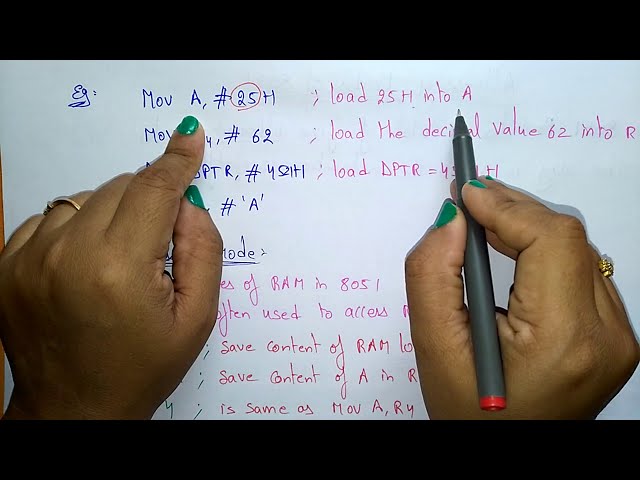 Eg: Mov A, #25H ; load 25H into A
Mov 4, # 62 ; load the decimal value 62 into R
DPTR, # 4521H ; load DPTR = 45 1H
# 'A'
mode:-
es of RAM in 8051
often used to access R
; save content of RAM lo
; save content of A in R
4 ; is same as Mov A, R4